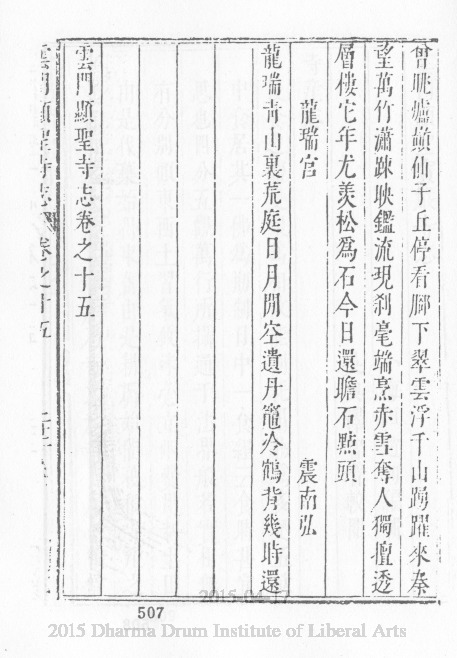 曾眺爐巔仙子丘停看廊下翠雲浮千山踴躍來奏
望萬竹瀟踈映鑑流現刹毫端烹赤雪奪人獨擅透
層樓它年尤羡松爲石今日還瞻石點頭
龍瑞宮
震南弘
龍瑞青山裏荒庭日月閒空遺丹竈冷鶴背幾時還
雲門顯聖寺志卷之十五
雲門顯聖寺志 卷之十五
507
2015-04-17
2015 Dharma Drum Institute of Liberal Arts